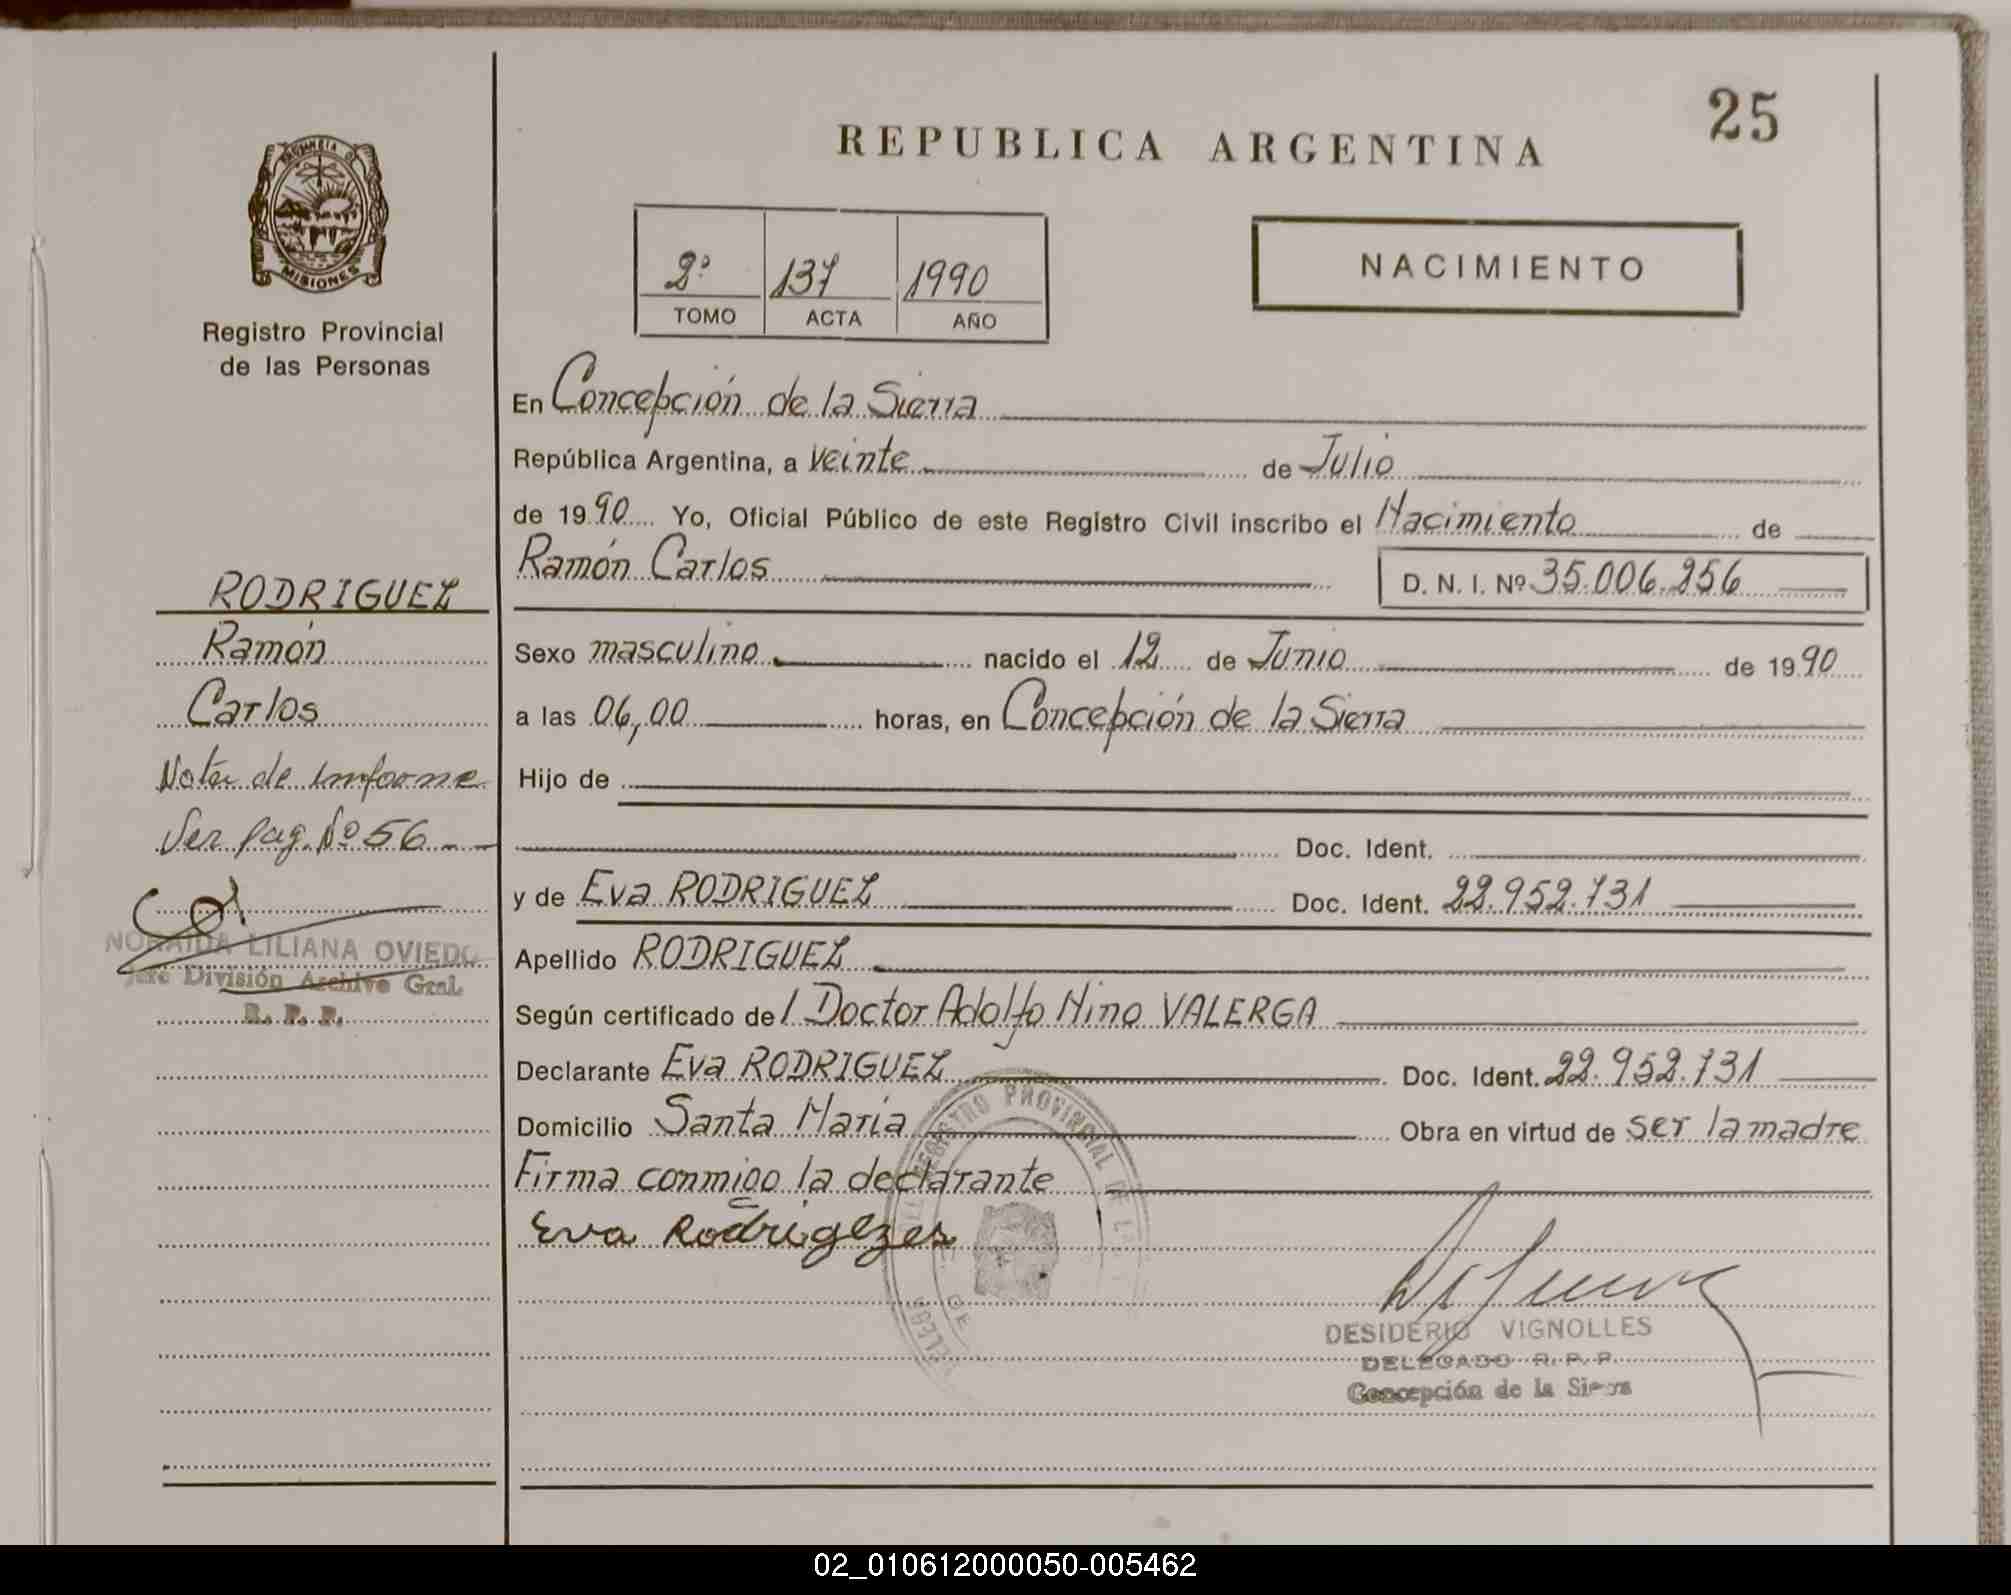 25
REPUBLICA ARGENTINA
PROVINCIA DE
MISIONES
Registro Provincial
de las Personas
2º 137 1990
TOMO ACTA AÑO
NACIMIENTO
RODRIGUEZ
Ramón
Carlos
Nota de informe
Ver pag. Nº 56
NORAIDA LILIANA OVIEDO
Jefe División Archivo Gral.
R. P. P.
En Concepción de la Sierra
República Argentina, a veinte de Julio
de 1990 Yo, Oficial Público de este Registro Civil inscribo el Nacimiento de
Ramón Carlos D. N. I. Nº 35.006.256
Sexo masculino nacido el 12 de Junio de 1990
a las 06,00 horas, en Concepción de la Sierra
Hijo de
Doc. Ident.
y de Eva RODRIGUEZ Doc. Ident. 22.952.731
Apellido RODRIGUEZ
Según certificado del Doctor Adolfo Nino VALERGA
Declarante Eva RODRIGUEZ Doc. Ident. 22.952.731
Domicilio Santa María Obra en virtud de ser la madre
Firma conmigo la declarante
Eva Rodrigezes
REGISTRO PROVINCIAL DE
DESIDERIO VIGNOLLES
DELEGADO R. P. P.
Concepción de la Sierra
02_010612000050-005462